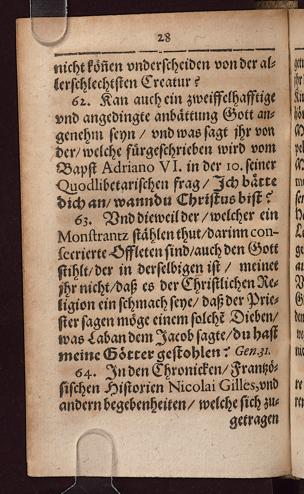 28
nicht köñen vnderscheiden von der al-
lerschlechtsten Creatur?
62. Kan auch ein zweiffelhafftige
vnd angedingte anbättung Gott an-
genehm seyn / vnd was sagt jhr von
der / welche fürgeschrieben wird vom
Bapst Adriano VI. in der 10. seiner
Quodlibetarischen frag / Jch bätte
dich an / wann du Christus bist?
63. Vnd dieweil der / welcher ein
Monstrantz stählen thut / darinn con-
secrierte Offleten sind / auch den Gott
stihlt / der in derselbigen ist / meinet
jhr nicht / daß es der Christlichen Re-
ligion ein schmach seye / daß der Prie-
ster sagen möge einem solchẽ Dieben /
was Laban dem Jacob sagte / du hast
meine Götter gestohlen? Gen. 31.
64. In den Chronicken / Frantzö-
sischen Historien Nicolai Gilles, vnd
andern begebenheiten / welche sich zu-
getragen